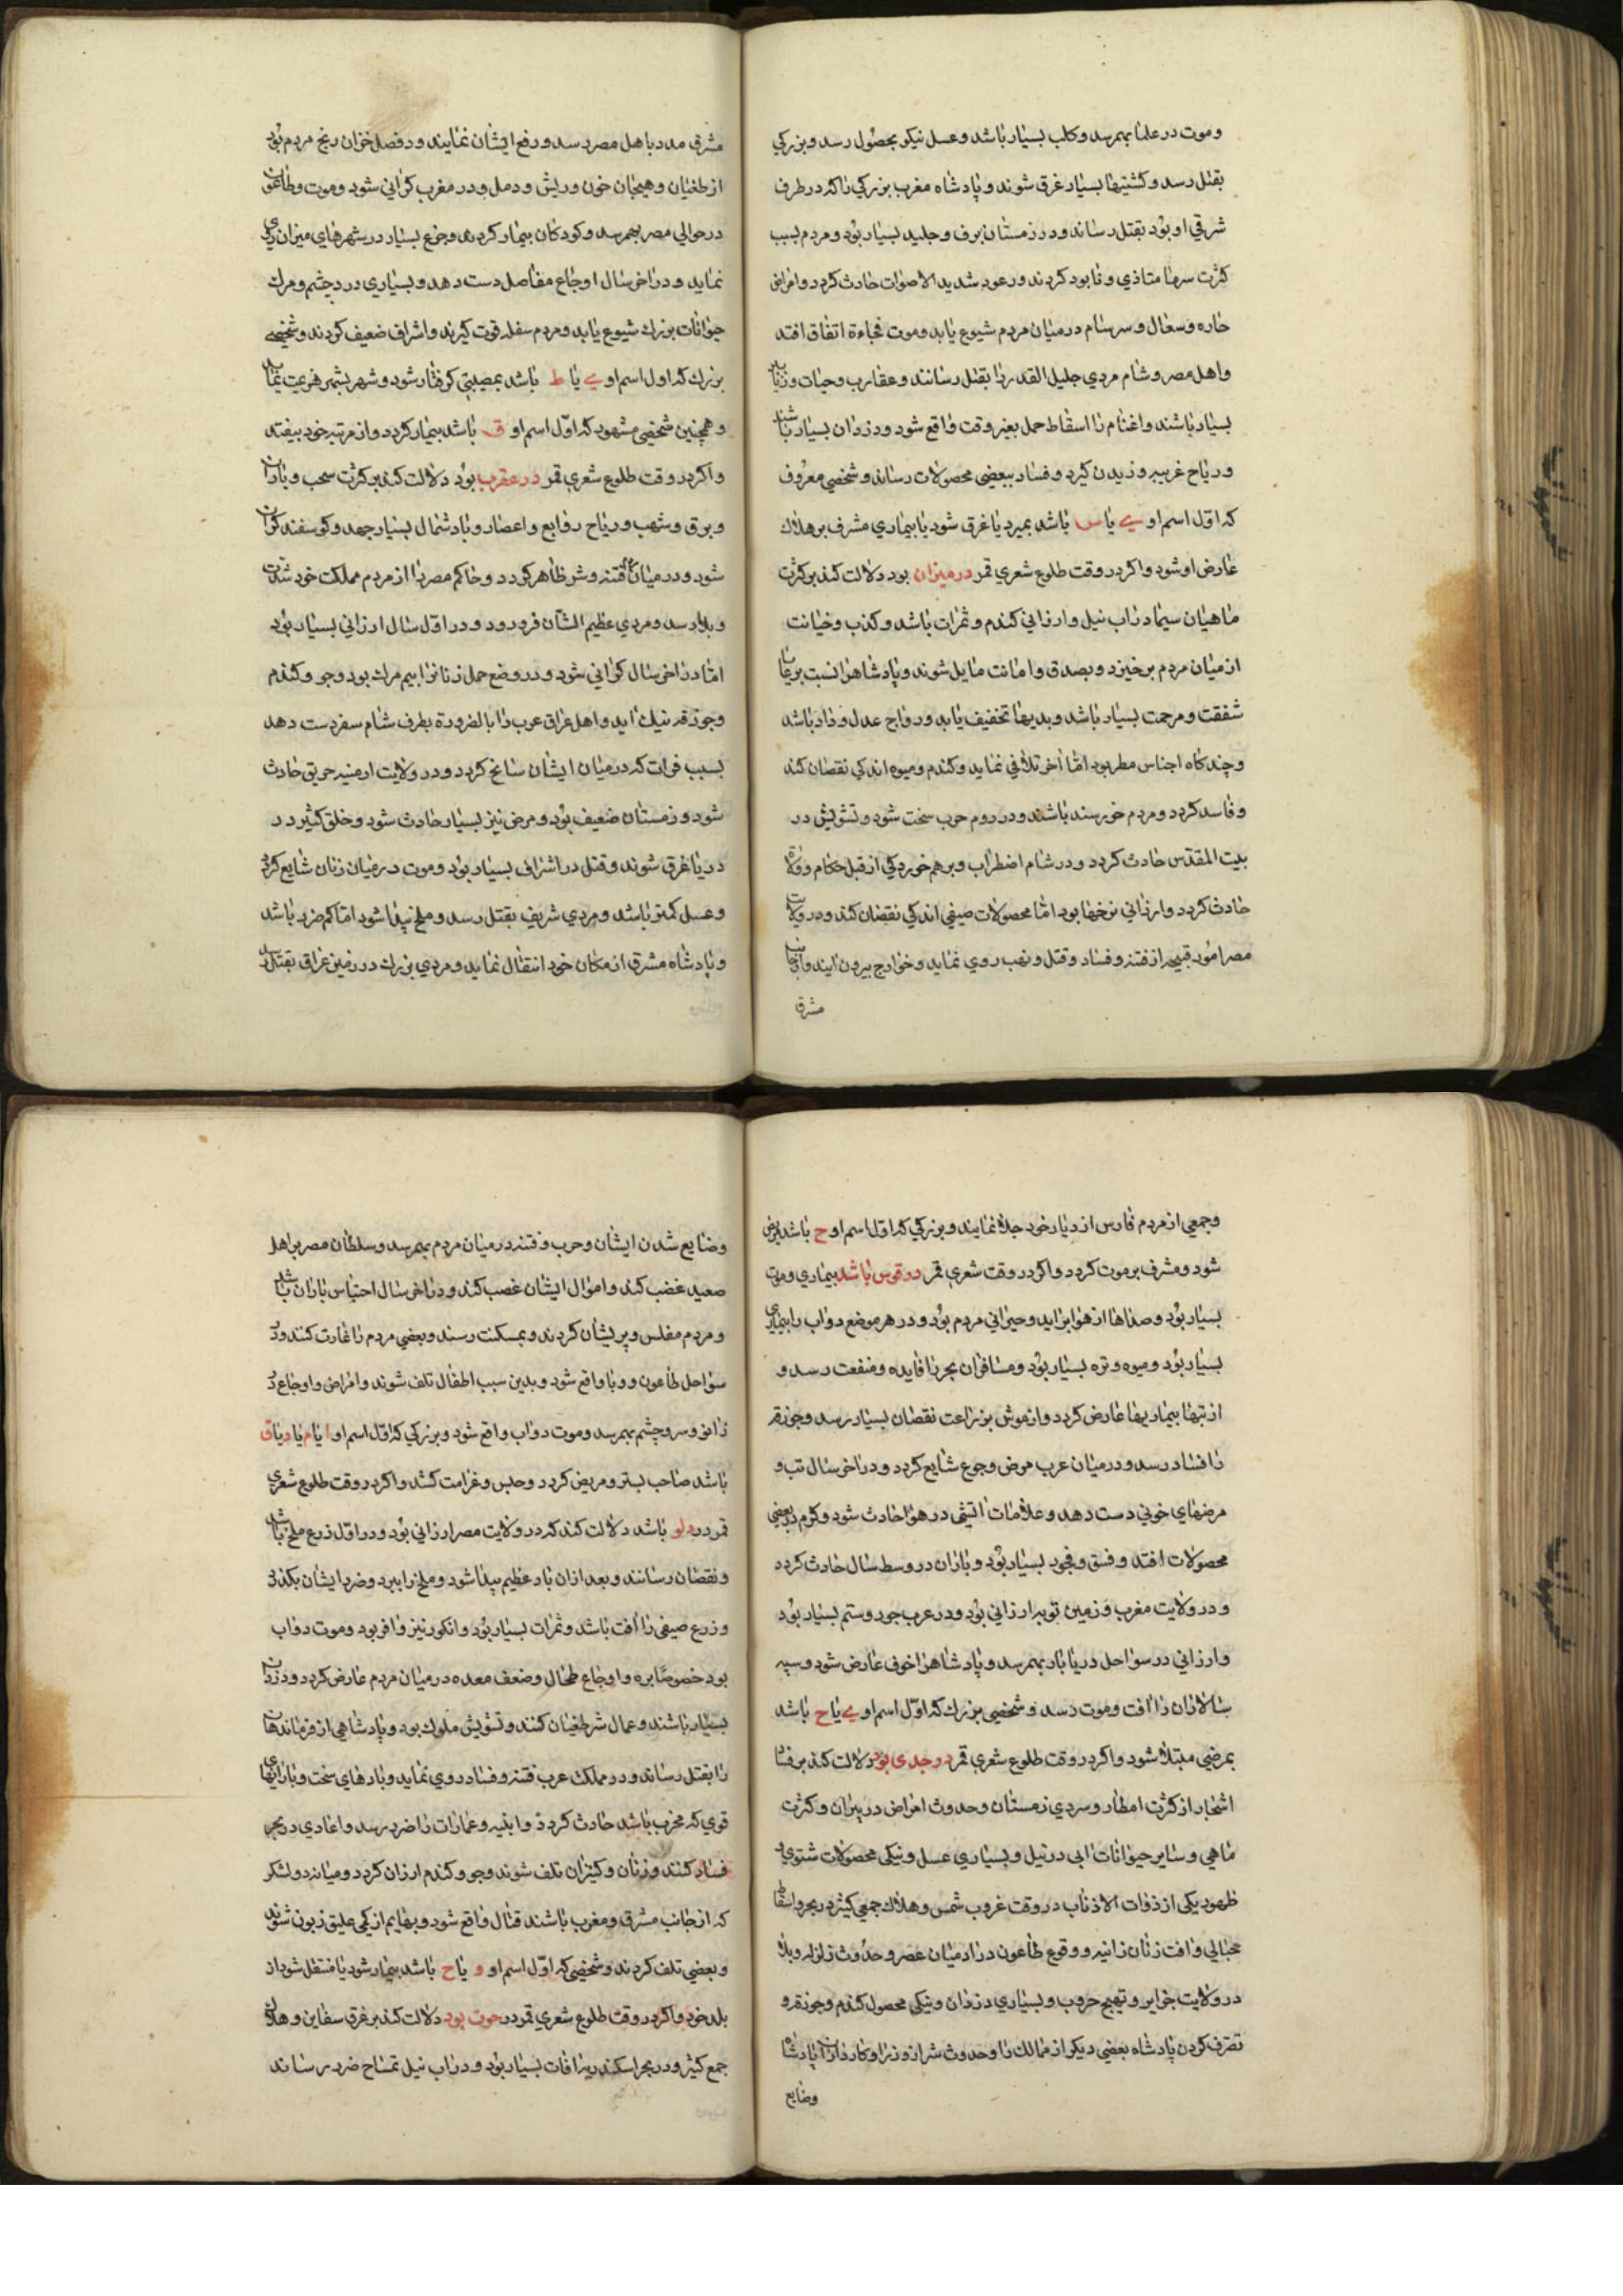 وموت در علما بهمرسد وکلب بسیار باشد وعسل نیکو بحصول رسد وبزرکی
بقتل رسد وکشتیها بسیار غرق شوند وپادشاه مغرب بزرکی را که در طرف
شرقی او بود بقتل رساند ودر زمستان برف وجلید بسیار بود ومردم بسبب
کثرت سرما متاذی ونابود کردند ورعود شدید الاصوات حادث کردد وامراض
حاره وسعال وسرسام در میان مردم شیوع یابد وموت فجاءة اتفاق افتد
واهل مصر وشام مردی جلیل القدر را بقتل رسانند وعقارب وحیات وذباب
بسیار باشند واغنام را اسقاط حمل بغیر وقت واقع شود ودزدان بسیار باشند
وریاح غریبه وزیدن کیرد وفساد ببعضی محصولات رساند وشخصی معروف
که اول اسم او ی یا س باشد بمیرد یا غرق شود یا بیماری مشرف بر هلاک
عارض او شود واکر در وقت طلوع شعری قمر در میزان بود دلالت کند بر کثرت
ماهیان سیما در آب نیل وارزانی کندم وثمرات باشد وکذب وخیانت
از میان مردم برخیزد وبصدق وامانت مایل شوند وپادشاهرا نسبت برعایا
شفقت ومرحمت بسیار باشد وبدیها تخفیف یابد ورواج عدل وداد باشد
وچند کاه اجناس مطر بود اما آخر تلافی نماید وکندم ومیوه اندکی نقصان کند
وفاسد کردد ومردم خورسند باشند ودر روم حرب سخت شود وتشویش در
بیت المقدس حادث کردد ودر شام اضطراب وبرهم خوردکی از قبل حکام وولاة
حادث کردد وارزانی نرخها بود اما محصولات صیفی اندکی نقصان کند ودر ولایت
مصر امور قبیحه از فتنه وفساد وقتل ونهب روی نماید وخوارج بیرون آیند واز جانب
مشرق
مشرق مدد باهل مصر رسد ورفع ایشان نمایند ودر فصل خزان رنج مردم بود
از طغیان وهیجان خون وریش ودمل ودر مغرب کرانی شود وموت وطاعون
در حوالی مصر بهمرسد وکودکان بیمار کردند وجزع بسیار در شهرهای میزان روی
نماید ودر آخر سال اوجاع مفاصل دست دهد وبسیاری درد چشم ومرک
حیوانات بزرک شیوع یابد ومردم سفله قوت کیرند واشراف ضعیف کردند وشخصی
بزرک که اول اسم او ی یا ط باشد بمصیبتی کرفتار شود وشهر بشهر هزیمت نماید
وهمچنین شخصی مشهور که اول اسم او ق باشد بیمار کردد واز مرتبه خود بیفتد
واکر در وقت طلوع شعری قمر در عقرب بود دلالت کند بر کثرت سحب وباران
وبرق وشهب وریاح زوابع واعصار وباد شمال بسیار جهد وکوسفند کران
شود ودر میان فتنه وشر ظاهر کردد وحاکم مصر را از مردم مملکت خود شدت
وبلا رسد ومردی عظیم الشان فرو رود ودر اول سال ارزانی بسیار بود
اما در آخر سال کرانی شود ودر وضع حمل زنانرا بیم مرک بود وجو وکندم
وجوزقه نیک آید واهل عراق عرب را بالضرورة بطرف شام سفر دست دهد
بسبب فرات که در میان ایشان سانح کردد ودر ولایت ارمنیه حریق حادث
شود وزمستان ضعیف بود ومرض نیز بسیار حادث شود وخلق کثیر در
دریا غرق شوند وقتل در اشراف بسیار بود وموت در میان زنان شایع کردد
وعسل کمتر باشد ومردی شریف بقتل رسد وملخ پیدا شود اما کم ضرر باشد
وپادشاه مشرق از مکان خود انتقال نماید ومردی بزرک در زمین عراق بقتل رسد
وجمعی از مردم فارس از دیار خود جلا نمایند وبزرکی که اول اسم او ح باشد مریض
شود ومشرف بر موت کردد واکر در وقت شعری قمر در قوس باشد بیماری وموت
بسیار بود وصداها از هوا برآید وحیرانی مردم بود ودر هر موضع دواب را بیماری
بسیار بود ومیوه وتره بسیار بود ومسافران بحر را فایده ومنفعت رسد و
از تبها بیماریها عارض کردد واز موش بزراعت نقصان بسیار رسد وجوزقه
را فساد رسد ودر میان عرب مرض وجوع شایع کردد ودر آخر سال تب و
مرضهای خونی دست دهد وعلامات آتشی در هوا حادث شود وکرم در بعضی
محصولات افتد وفسق وفجور بسیار بود وباران در وسط سال حادث کردد
ودر ولایت مغرب وزمین نوبه ارزانی بود ودر عرب جور وستم بسیار بود
وارزانی در سواحل دریا بار بهمرسد وپادشاهرا خوف عارض شود وسپه
سالاران را آفت وموت رسد وشخصی بزرک که اول اسم او ی یا ح باشد
بمرضی مبتلا شود واکر در وقت طلوع شعری قمر در جدی بود دلالت کند بر فساد
اشجار از کثرت امطار وسردی زمستان وحدوث امراض در پیران وکثرت
ماهی وسایر حیوانات آبی در نیل وبسیاری عسل ونیکی محصولات شتوی و
ظهور یکی از ذوات الاذناب در وقت غروب شمس وهلاک جمعی کثیر در بحر واسقاط
حبالی وآفت زنان زانیه ووقوع طاعون در ادمیان عصر وحدوث زلزله وبلا
در ولایت جزایر وتهیج حروب وبسیاری دزدان ونیکی محصول کندم وجوزقه و
تصرف کردن پادشاه بعضی دیکر از ممالک را وحدوث شر از وزرا وکارداران پادشاه
وضایع
وضایع شدن ایشان وحرب وفتنه در میان مردم بهمرسد وسلطان مصر بر اهل
صعید غضب کند واموال ایشان غصب کند ودر آخر سال احتباس باران باشد
ومردم مفلس وپریشان کردند وبمسکنت رسند وبعضی مردم را غارت کنند ودر
سواحل طاعون ووبا واقع شود وبدین سبب اطفال تلف شوند وامراض واوجاع در
زانو وسر وچشم بهمرسد وموت دواب واقع شود وبزرکی که اول اسم او ا یا م یا د یا ق
باشد صاحب بستر ومریض کردد وحبس وغرامت کشد واکر در وقت طلوع شعری
قمر در دلو باشد دلالت کند که در ولایت مصر ارزانی بود ودر اول زرع ملخ باشد
ونقصان رسانند وبعد از آن باد عظیم پیدا شود وملخ را ببرد وضرر ایشان بکذرد
وزرع صیفی را آفت باشد وثمرات بسیار بود وانکور نیز وافر بود وموت دواب
بود خصوصا بره واوجاع طحال وضعف معده در میان مردم عارض کردد ودزدان
بسیار باشند وعمال شر طغیان کنند وتشویش ملوک بود وپادشاهی از فرماندهان
را بقتل رساند ودر مملکت عرب فتنه وفساد روی نماید وبادهای سخت وبارانهای
قوی که مخرب باشد حادث کردد وابنیه وعمارات را ضرر رسد واعادی در بحر
فساد کنند وزنان وکنیزان تلف شوند وجو وکندم ارزان کردد ومیانه دو لشکر
که از جانب مشرق ومغرب باشند قتال واقع شود وبهایم از کمی علیق زبون شوند
وبعضی تلف کردند وشخصی که اول اسم او و یا ح باشد بیمار شود یا منتقل شود از
بلد خود واکر در وقت طلوع شعری قمر در حوت بود دلالت کند بر غرق سفاین وهلاک
جمع کثیر ودر بحر اسکندریه آفات بسیار بود ودر آب نیل تمساح ضرر رساند